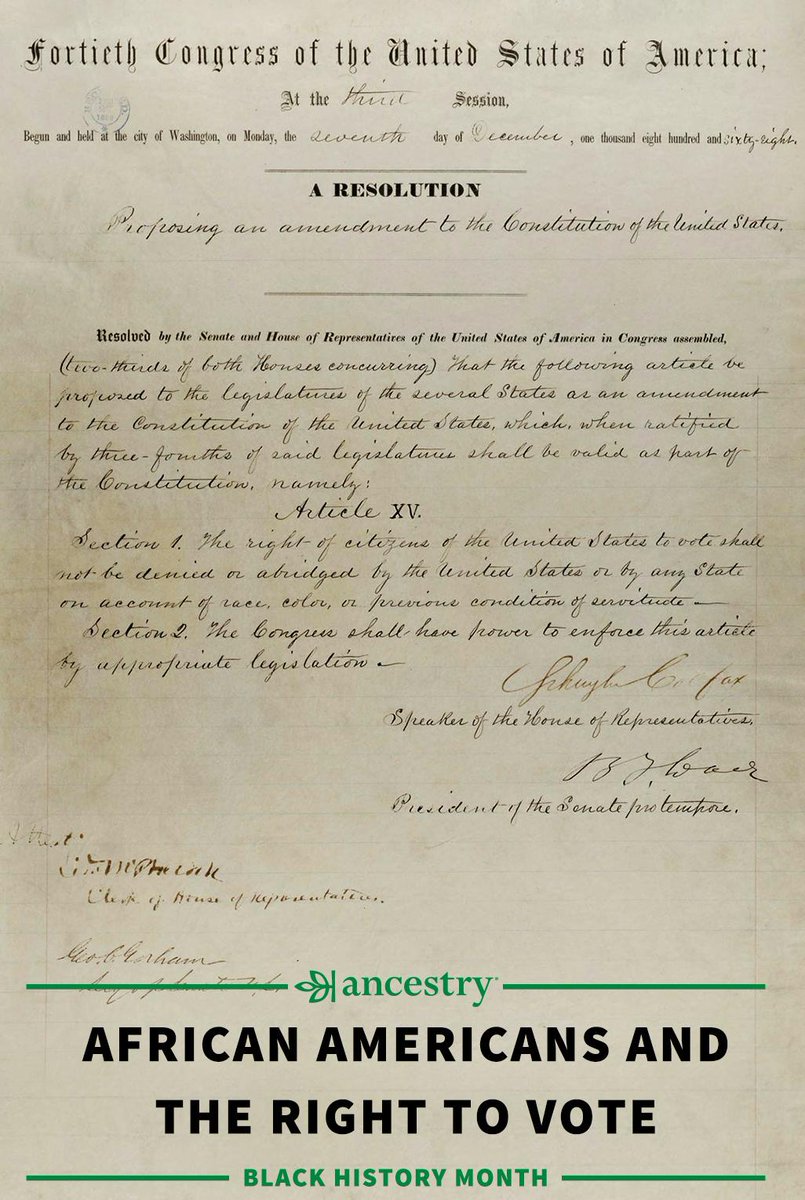 Fortieth Congress of the United States of America;
At the third Session,
Begun and held at the city of Washington, on Monday, the seventh day of December, one thousand eight hundred and sixty-eight.
A RESOLUTION
Proposing an amendment to the Constitution of the United States.
Resolved by the Senate and House of Representatives of the United States of America in Congress assembled,
(two-thirds of both Houses concurring) That the following article be
proposed to the legislatures of the several States as an amendment
to the Constitution of the United States, which, when ratified
by three-fourths of said legislatures shall be valid as part of
the Constitution, namely:
Article XV.
Section 1. The right of citizens of the United States to vote shall
not be denied or abridged by the United States or by any State
on account of race, color, or previous condition of servitude.
Section 2. The Congress shall have power to enforce this article
by appropriate legislation.
Schuyler Colfax
Speaker of the House of Representatives.
B F Wade
President of the Senate protempore.
Attest:
McPherson
Clerk of House of Representatives.
Geo. C. Gorham
ancestry
AFRICAN AMERICANS AND
THE RIGHT TO VOTE
BLACK HISTORY MONTH